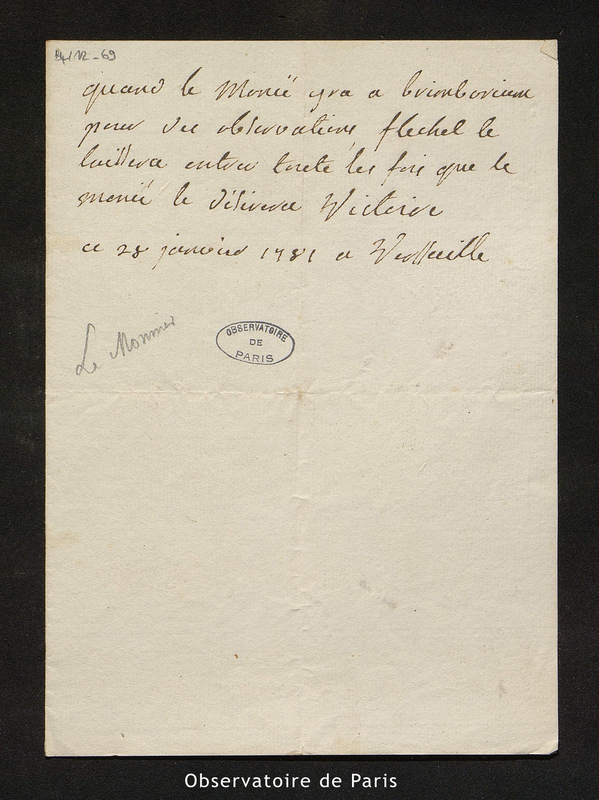 quand le Monié yra a brimborium
pour des observations flechel le
laissera entrer toute les fois que le
monié le désirera Victoire
ce 28 janvier 1781 a Versaille
Le Monnier
OBSERVATOIRE
DE
PARIS
Observatoire de Paris